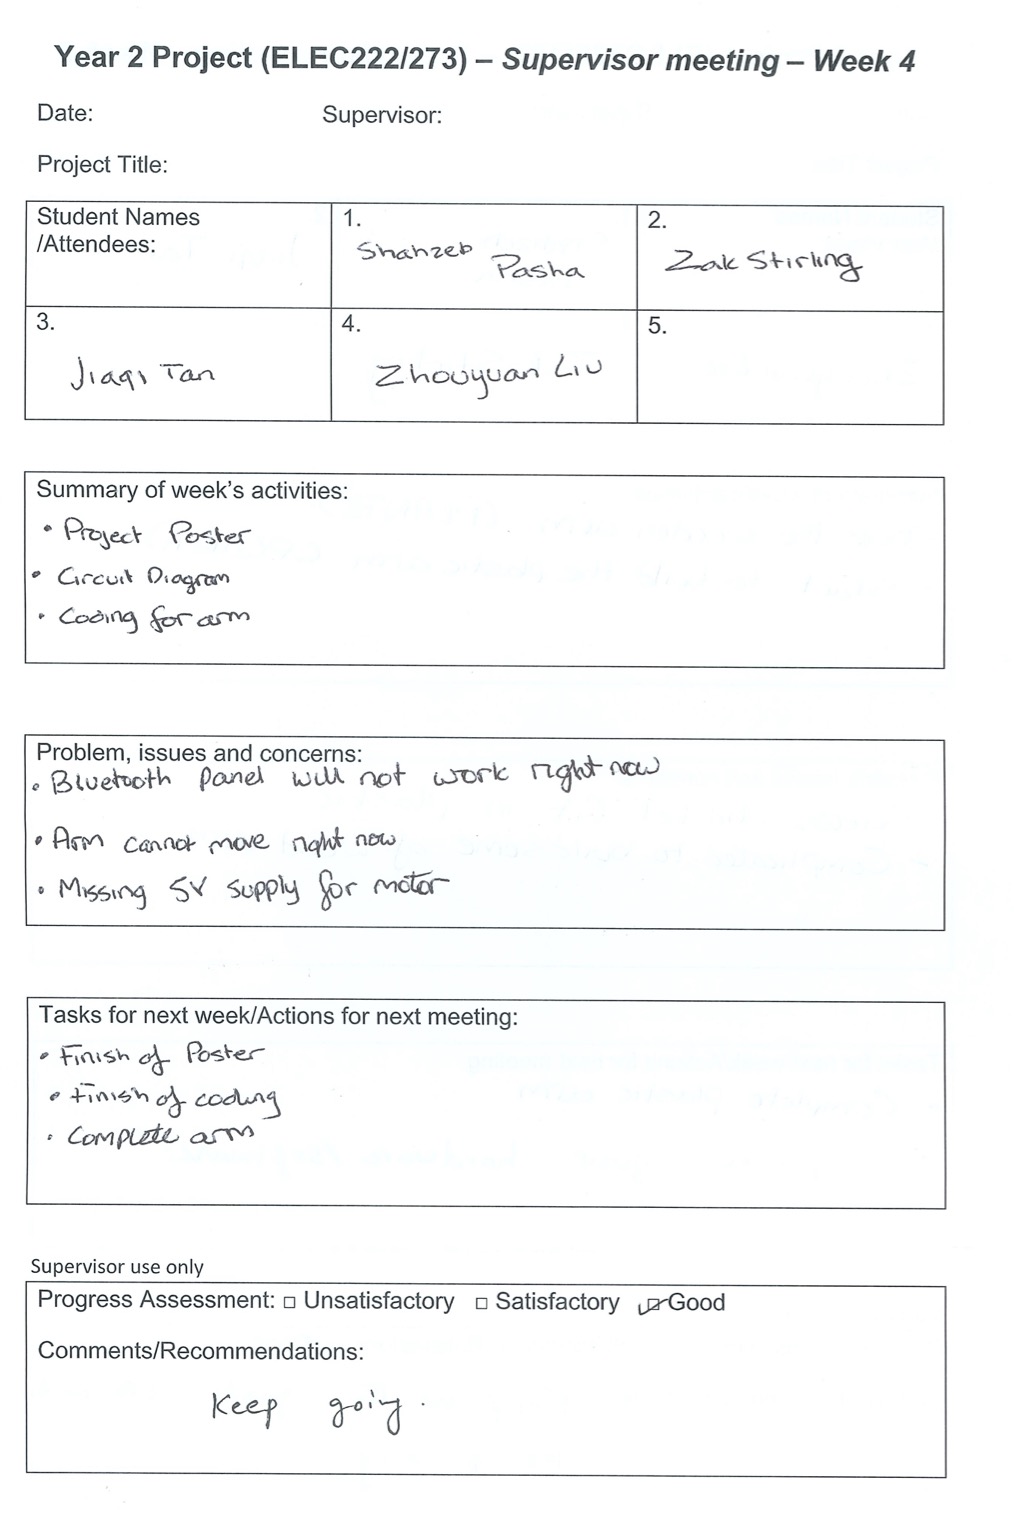 Year 2 Project (ELEC222/273) – Supervisor meeting – Week 4
Date: Supervisor:
Project Title:
Student Names
/Attendees:
1.
Shahzeb
Pasha
2.
Zak Stirling
3.
Jiaqi Tan
4.
Zhouyuan Liu
5.
Summary of week's activities:
• Project Poster
• Circuit Diagram
• Coding for arm
Problem, issues and concerns:
• Bluetooth Panel will not work right now
• Arm cannot move right now
• Missing 5V supply for motor
Tasks for next week/Actions for next meeting:
• Finish of Poster
• Finish of coding
• Complete arm
Supervisor use only
Progress Assessment: □ Unsatisfactory □ Satisfactory ☑ Good
Comments/Recommendations:
Keep going.